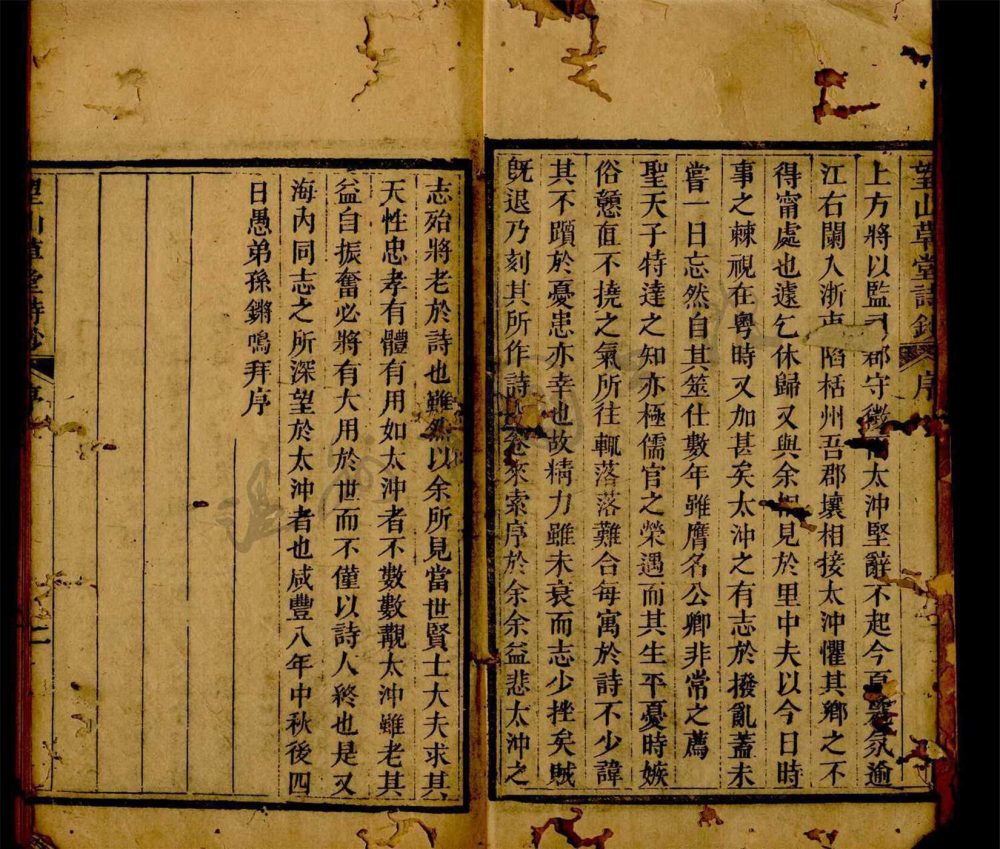 望山草堂詩鈔 序
上方將以監司郡守徵太沖堅辭不起今夏氛逾
江右闌入浙東陷栝州吾郡壤相接太沖懼其鄉之不
得甯處也遽乞休歸又與余相見於里中夫以今日時
事之棘視在粵時又加甚矣太沖之有志於撥亂蓋未
嘗一日忘然自其筮仕數年雖膺名公卿非常之薦
聖天子特達之知亦極儒官之榮遇而其生平憂時嫉
俗戇直不撓之氣所往輒落落難合每寓於詩不少諱
其不躓於憂患亦幸也故精力雖未衰而志少挫矣賊
既退乃刻其所作詩卷來索序於余余益悲太沖之
志殆將老於詩也雖然以余所見當世賢士大夫求其
天性忠孝有體有用如太沖者不數數覯太沖雖老其
益自振奮必將有大用於世而不僅以詩人終也是又
海內同志之所深望於太沖者也咸豐八年中秋後四
日愚弟孫鏘鳴拜序
望山草堂詩鈔 序 二